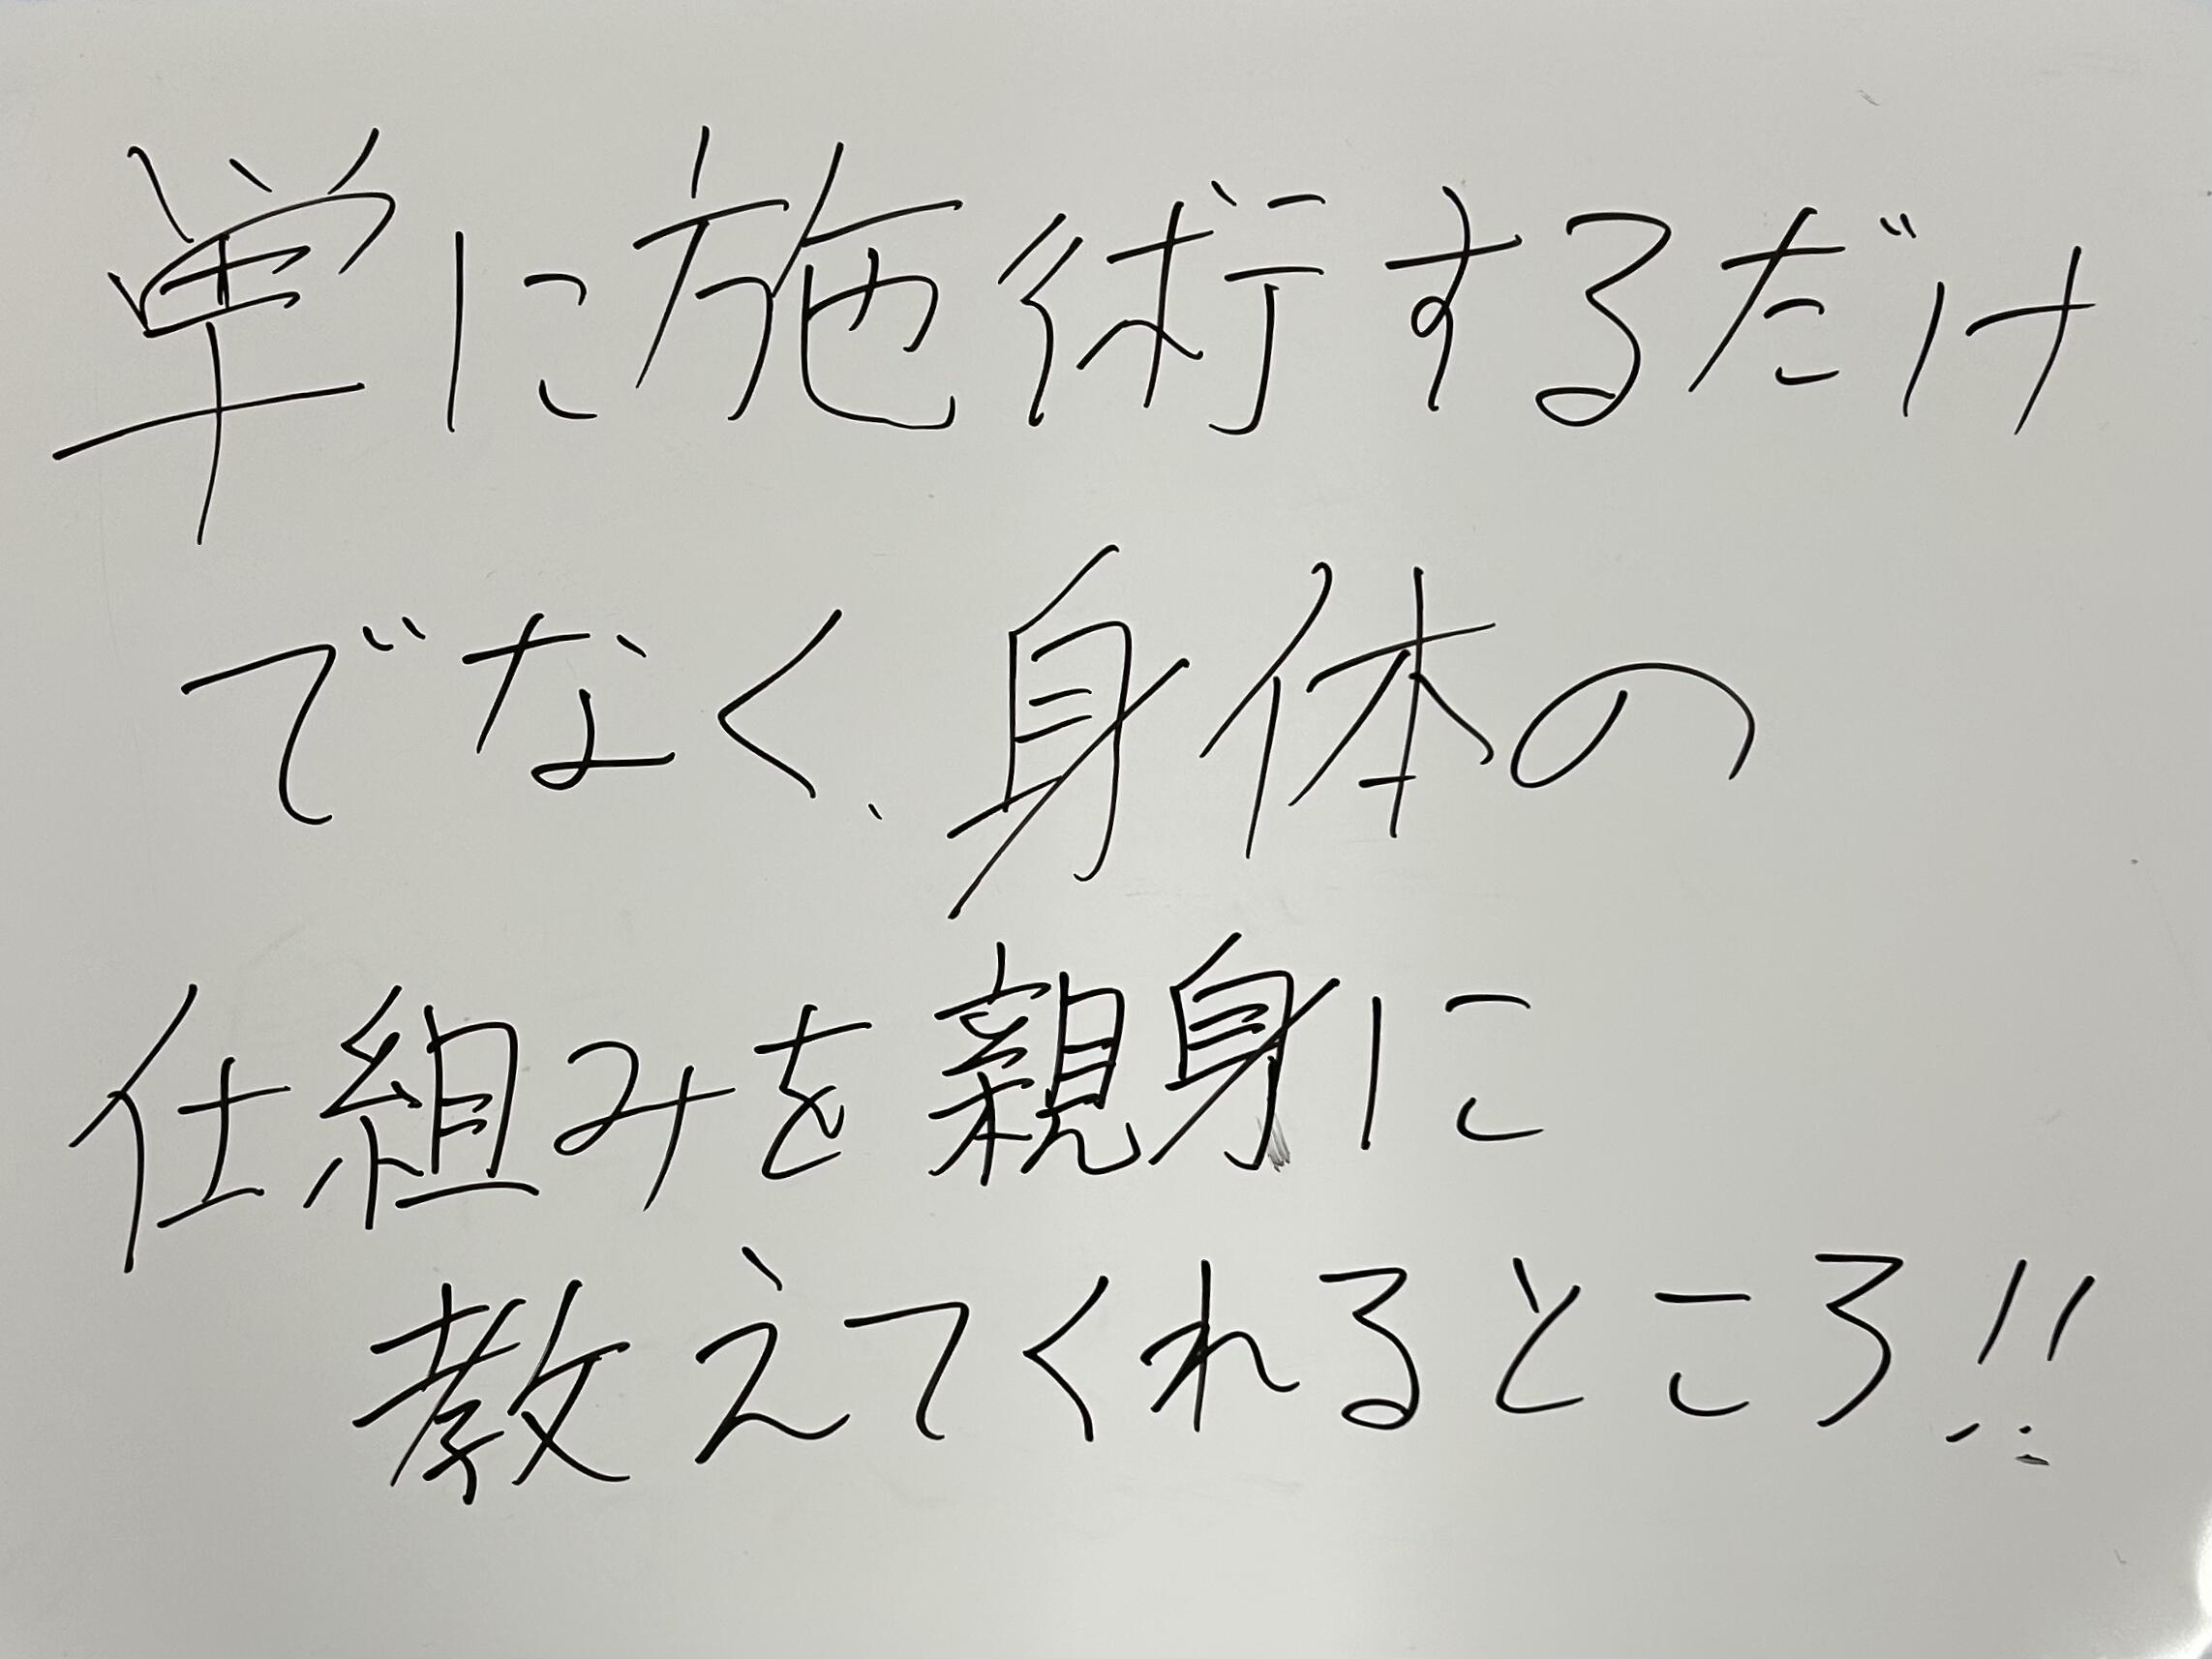 単に施術するだけ
でなく、身体の
仕組みを親身に
教えてくれるところ!!